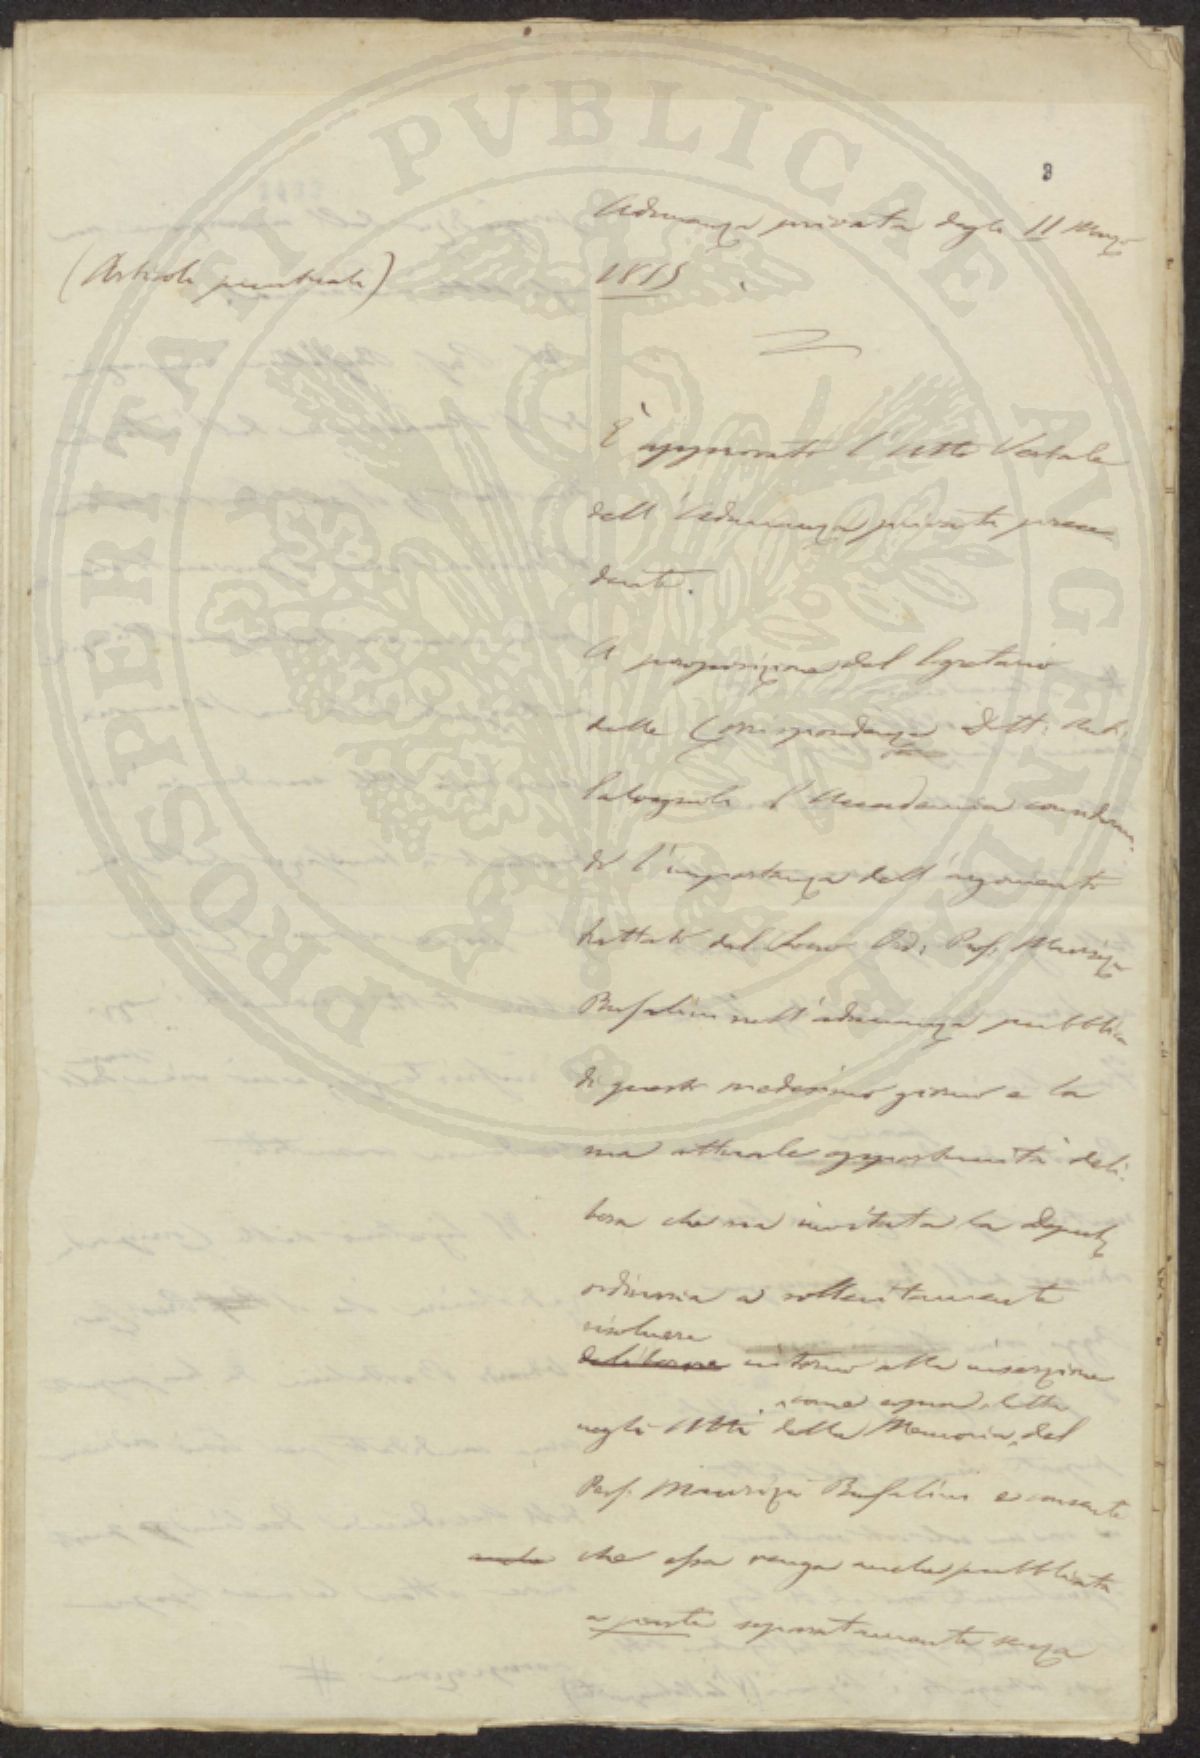 3
Adunanza privata degli 11 Marzo
1855
(Articoli puntuali)
È approvato l'Atto Verbale
dell'Adunanza privata prece
dente.
A proposizione del Segretario
delle Corrispondenze Dott:
Salvagnoli l'Accademia consideran-
do l'importanza dell'argomento
trattato dal Socio Ord: Prof. Maurizio
Bufalini nell'adunanza pubblica
di questo medesimo giorno e la
sua attuale opportunità deli-
bera che sia invitata la Deput.
ordinaria a sollecitamente
risolvere
deliberare intorno alla inserzione
come sopra letta
negli Atti della Memoria del
Prof. Maurizio Bufalini e consente
che essa venga anche pubblicata
a parte separatamente senza
PROSPERITATI PVBLICAE AVGENDAE